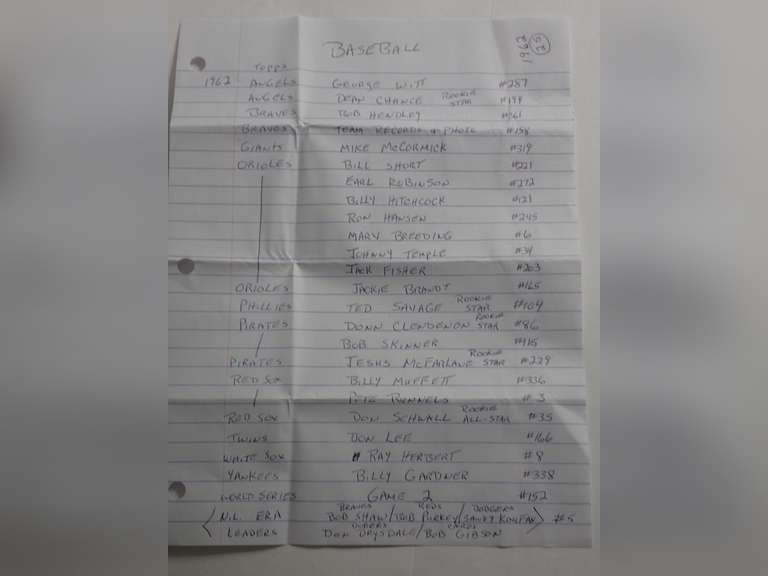 1962 52
BASEBALL
TOPPS
1962 ANGELS GEORGE WITT #287
ANGELS DEAN CHANCE ROOKIE STAR #194
BRAVES BOB HENDLEY #361
BRAVES TEAM RECORDS & PHOTO #158
GIANTS MIKE McCORMICK #319
ORIOLES BILL SHORT #221
EARL ROBINSON #272
BILLY HITCHCOCK #121
RON HANSEN #245
MARV BREEDING #6
JOHNNY TEMPLE #34
JACK FISHER #203
ORIOLES JACKIE BRANDT #165
PHILLIES TED SAVAGE ROOKIE STAR #104
PIRATES DONN CLENDENON ROOKIE STAR #86
BOB SKINNER #115
PIRATES JESUS McFARLANE ROOKIE STAR #229
RED SOX BILLY MUFFETT #336
PETE RUNNELS #3
RED SOX DON SCHWALL ROOKIE ALL-STAR #35
TWINS DON LEE #166
WHITE SOX RAY HERBERT #8
YANKEES BILLY GARDNER #338
WORLD SERIES GAME 2 #152
BRAVES REDS DODGERS
N.L. ERA BOB SHAW/BOB PURKEY/SANDY KOUFAX #5
DODGERS CARDS
LEADERS DON DRYSDALE/BOB GIBSON